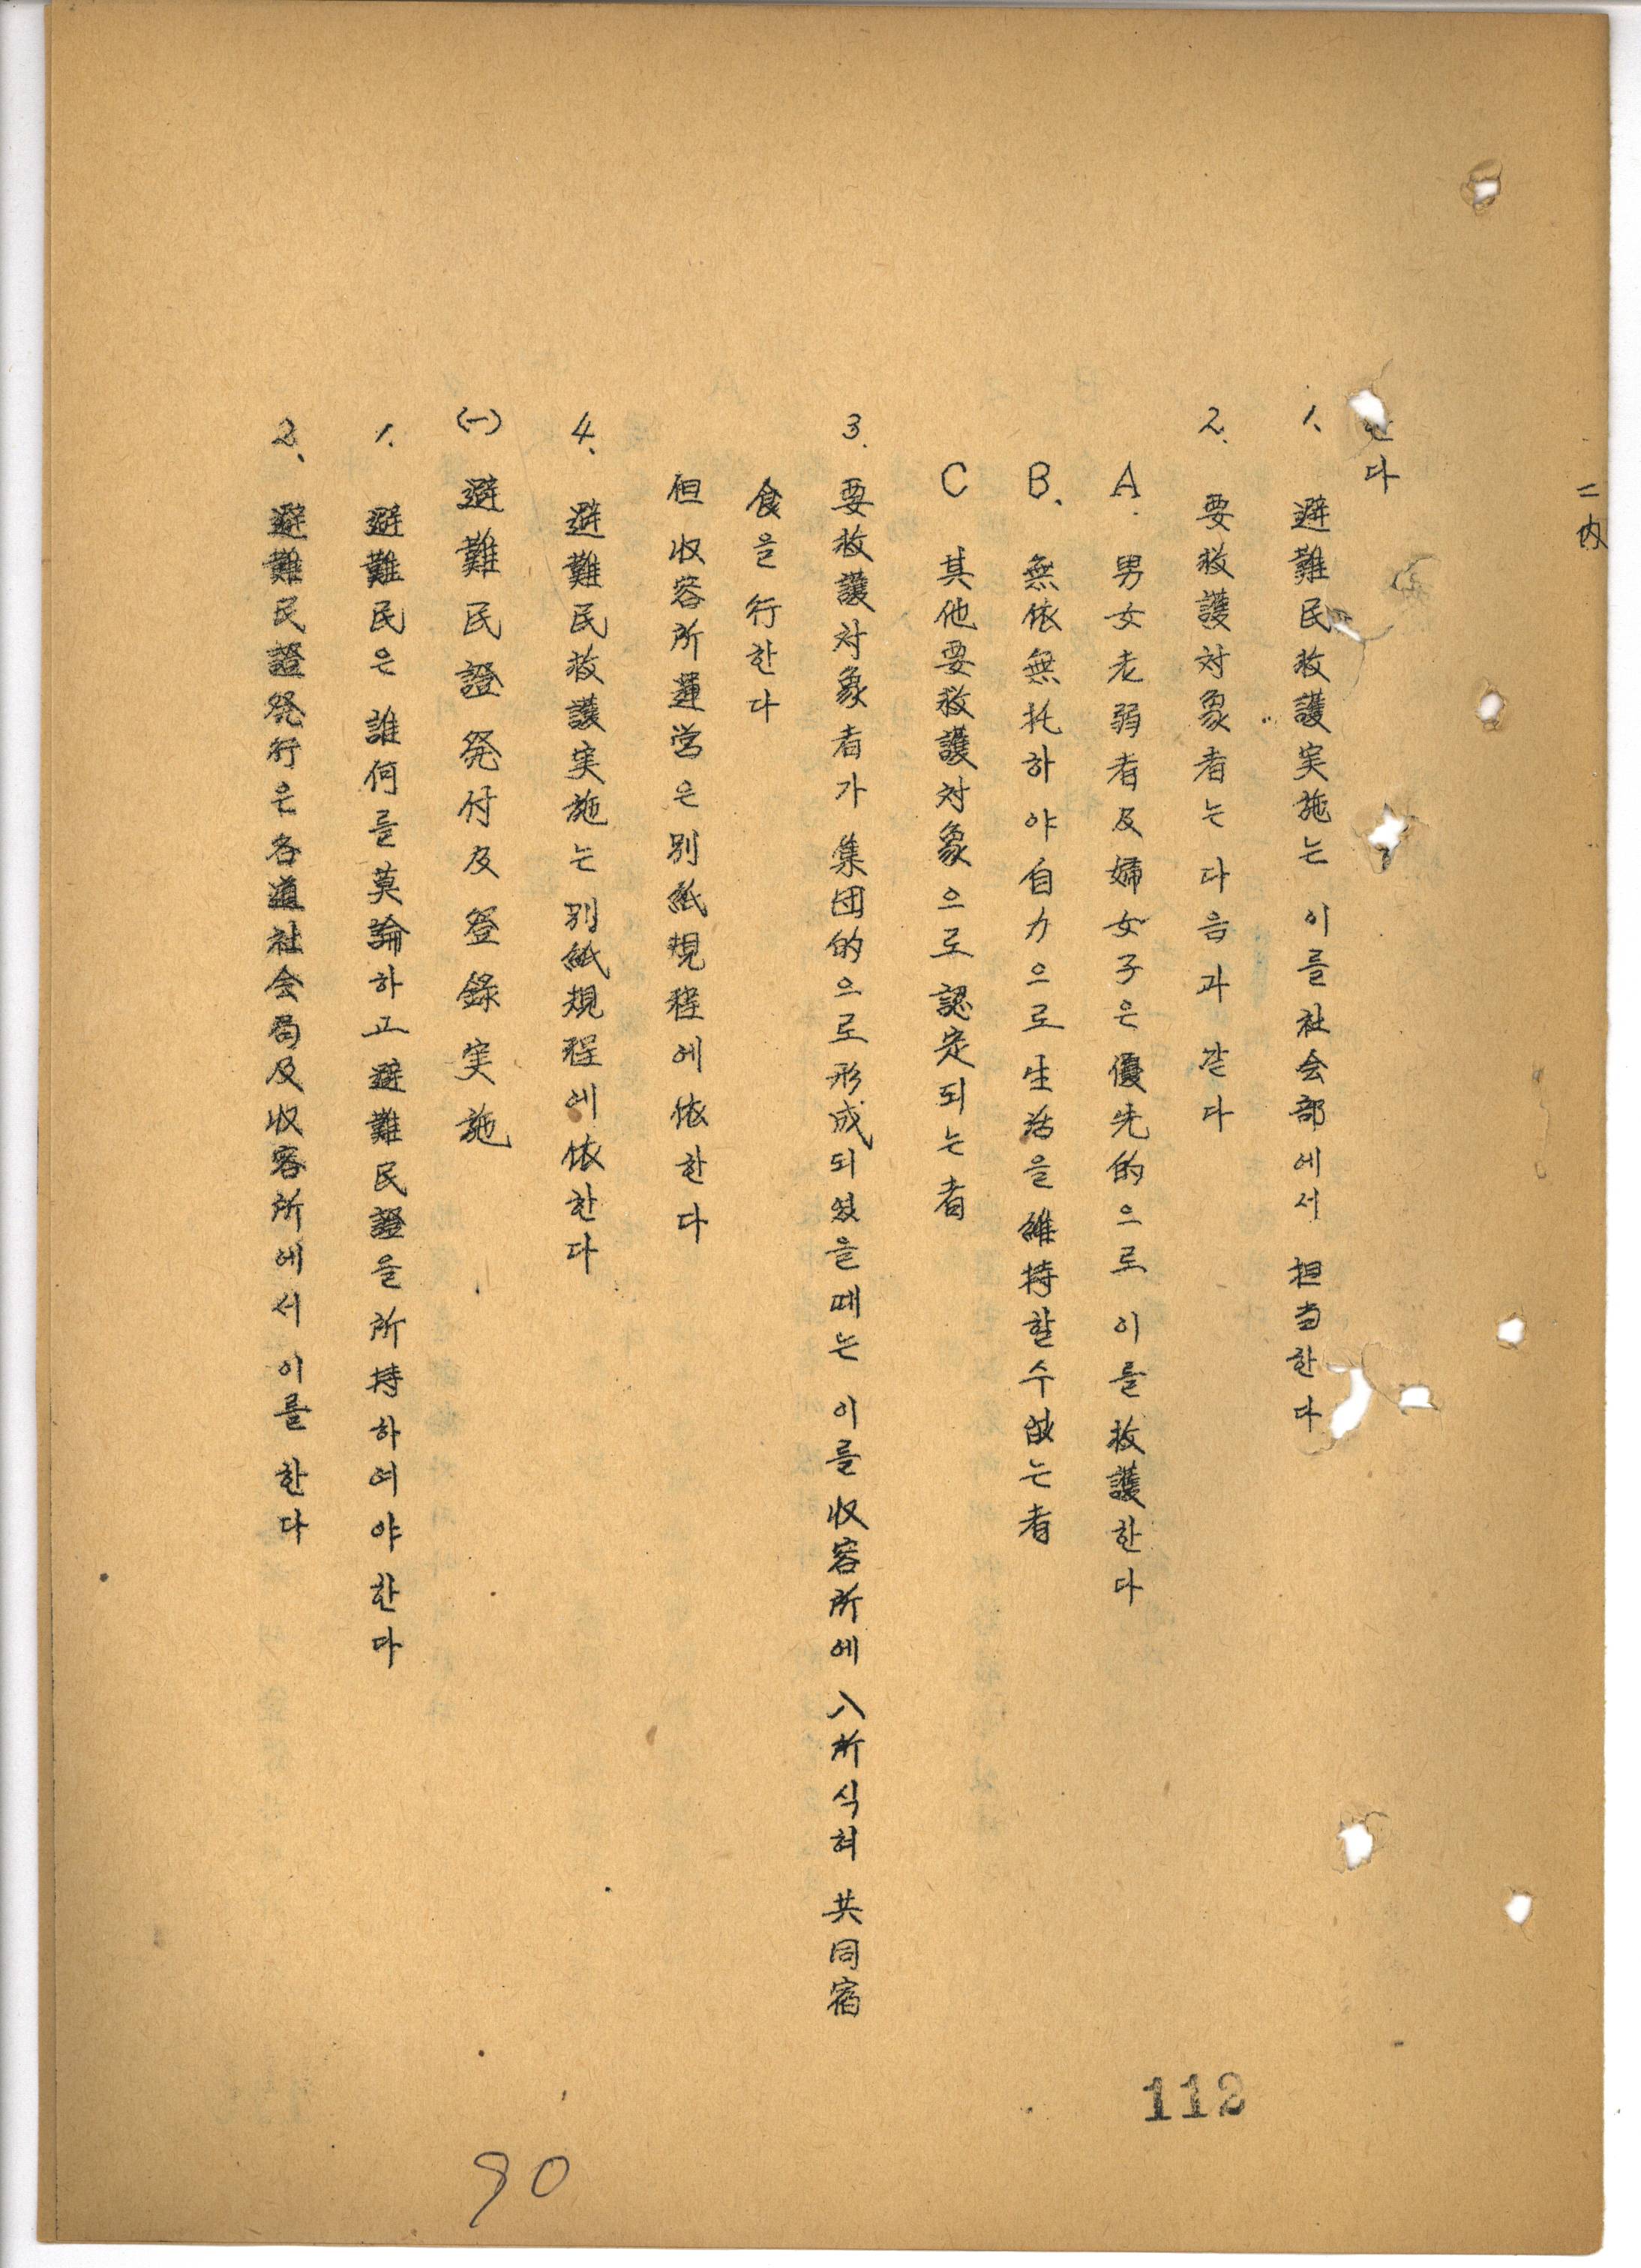 二内
한다
1、避難民救護実施는 이를社会部에서 担当한다
2、要救護対象者는다음과같다
A. 男女老弱者及婦女子은優先的으로 이를救護한다
B、無依無托하야自力으로生活을維持할수없는者
C 其他要救護対象으로認定되는者
3. 要救護対象者가 集団的으로形成되였을때는 이를收容所에 入所식혀 共同宿
食을行한다
但收容所運営은別紙規程에依한다
4、避難民救護実施는別紙規程에依한다
(一) 避難民證発付及登錄実施
1. 避難民은 誰何를莫論하고避難民證을所持하여야한다
2、避難民證発行은各道社会局及收容所에서 이를한다
112
90